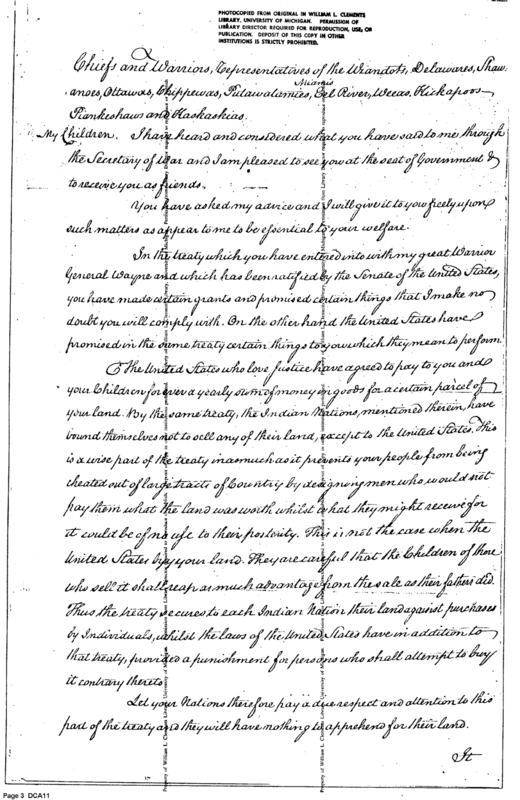 PHOTOCOPIED FROM ORIGINAL IN WILLIAM L. CLEMENTS
LIBRARY, UNIVERSITY OF MICHIGAN. PERMISSION OF
LIBRARY DIRECTOR REQUIRED FOR REPRODUCTION, USE, OR
PUBLICATION. DEPOSIT OF THIS COPY IN OTHER
INSTITUTIONS IS STRICTLY PROHIBITED.
Chiefs and Warriors, Representatives of the Wiandots, Delawares, Shaw-
Miamis
anoes, Ottawas, Chippewas, Putawatamies, Eel River, Weeas, Kickapoos
Piankeshaws and Kaskaskias.
My Children. I have heard and considered what you have said to me through
the Secretary of War and I am pleased to see you at the seat of Government &
to receive you as friends.
You have asked my advice and I will give it to you freely upon
such matters as appear to me to be essential to your welfare.
In the treaty which you have entered into with my great Warrior
General Wayne and which has been ratified by the Senate of the United States,
you have made certain grants and promised certain things that I make no
doubt you will comply with. On the other hand the United States have
promised in the same treaty certain things to you which they mean to perform.
The United States who love Justice have agreed to pay to you and
your Children for ever a yearly sum of money in goods for a certain parcel of
your land. By the same treaty, the Indian Nations, mentioned therein, have
bound themselves not to sell any of their land, except to the United States. This
is a wise part of the treaty inasmuch as it prevents your people from being
cheated out of large tracts of Country by designing men who would not
pay them what the land was worth whilst what they might receive for
it would be of no use to their posterity. This is not the case when the
United States buy your land. They are careful that the Children of those
who sell it shall reap as much advantage from the sale as their fathers did.
Thus the treaty secures to each Indian Nation their land against purchases
by Individuals, whilst the laws of the United States have in addition to
that treaty, provided a punishment for persons who shall attempt to buy
it contrary thereto.
Let your Nations therefore pay a due respect and attention to this
part of the treaty and they will have nothing to apprehend for their land.
It
Page 3 DCA11